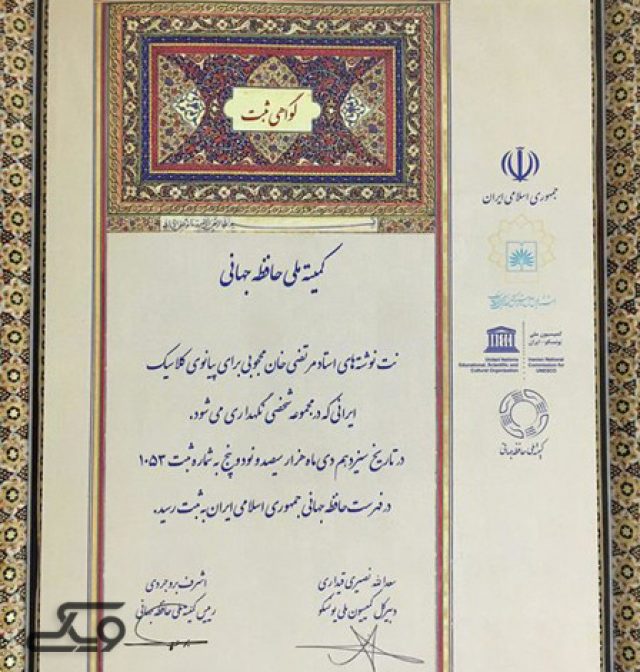 گواهی ثبت
جمهوری اسلامی ایران
کمیته ملی حافظه جهانی
کمیسیون ملی
یونسکو - ایران
United Nations
Educational, Scientific and
Cultural Organization
Iranian National
Commission for
UNESCO
کمیته ملی حافظه جهانی
نت نوشته‌های استاد مرتضی خان محجوبی برای پیانوی کلاسیک
ایرانی که در مجموعه شخصی نگهداری می شود.
در تاریخ سیزدهم دی ماه هزار سیصد و نود و پنج به شماره ثبت ۱۰۵۳
در فهرست حافظه جهانی جمهوری اسلامی ایران به ثبت رسید.
سعدالله نصیری قیداری
دبیرکل کمیسیون ملی یونسکو
اشرف بروجردی
رییس کمیته ملی حافظه جهانی
ویکی